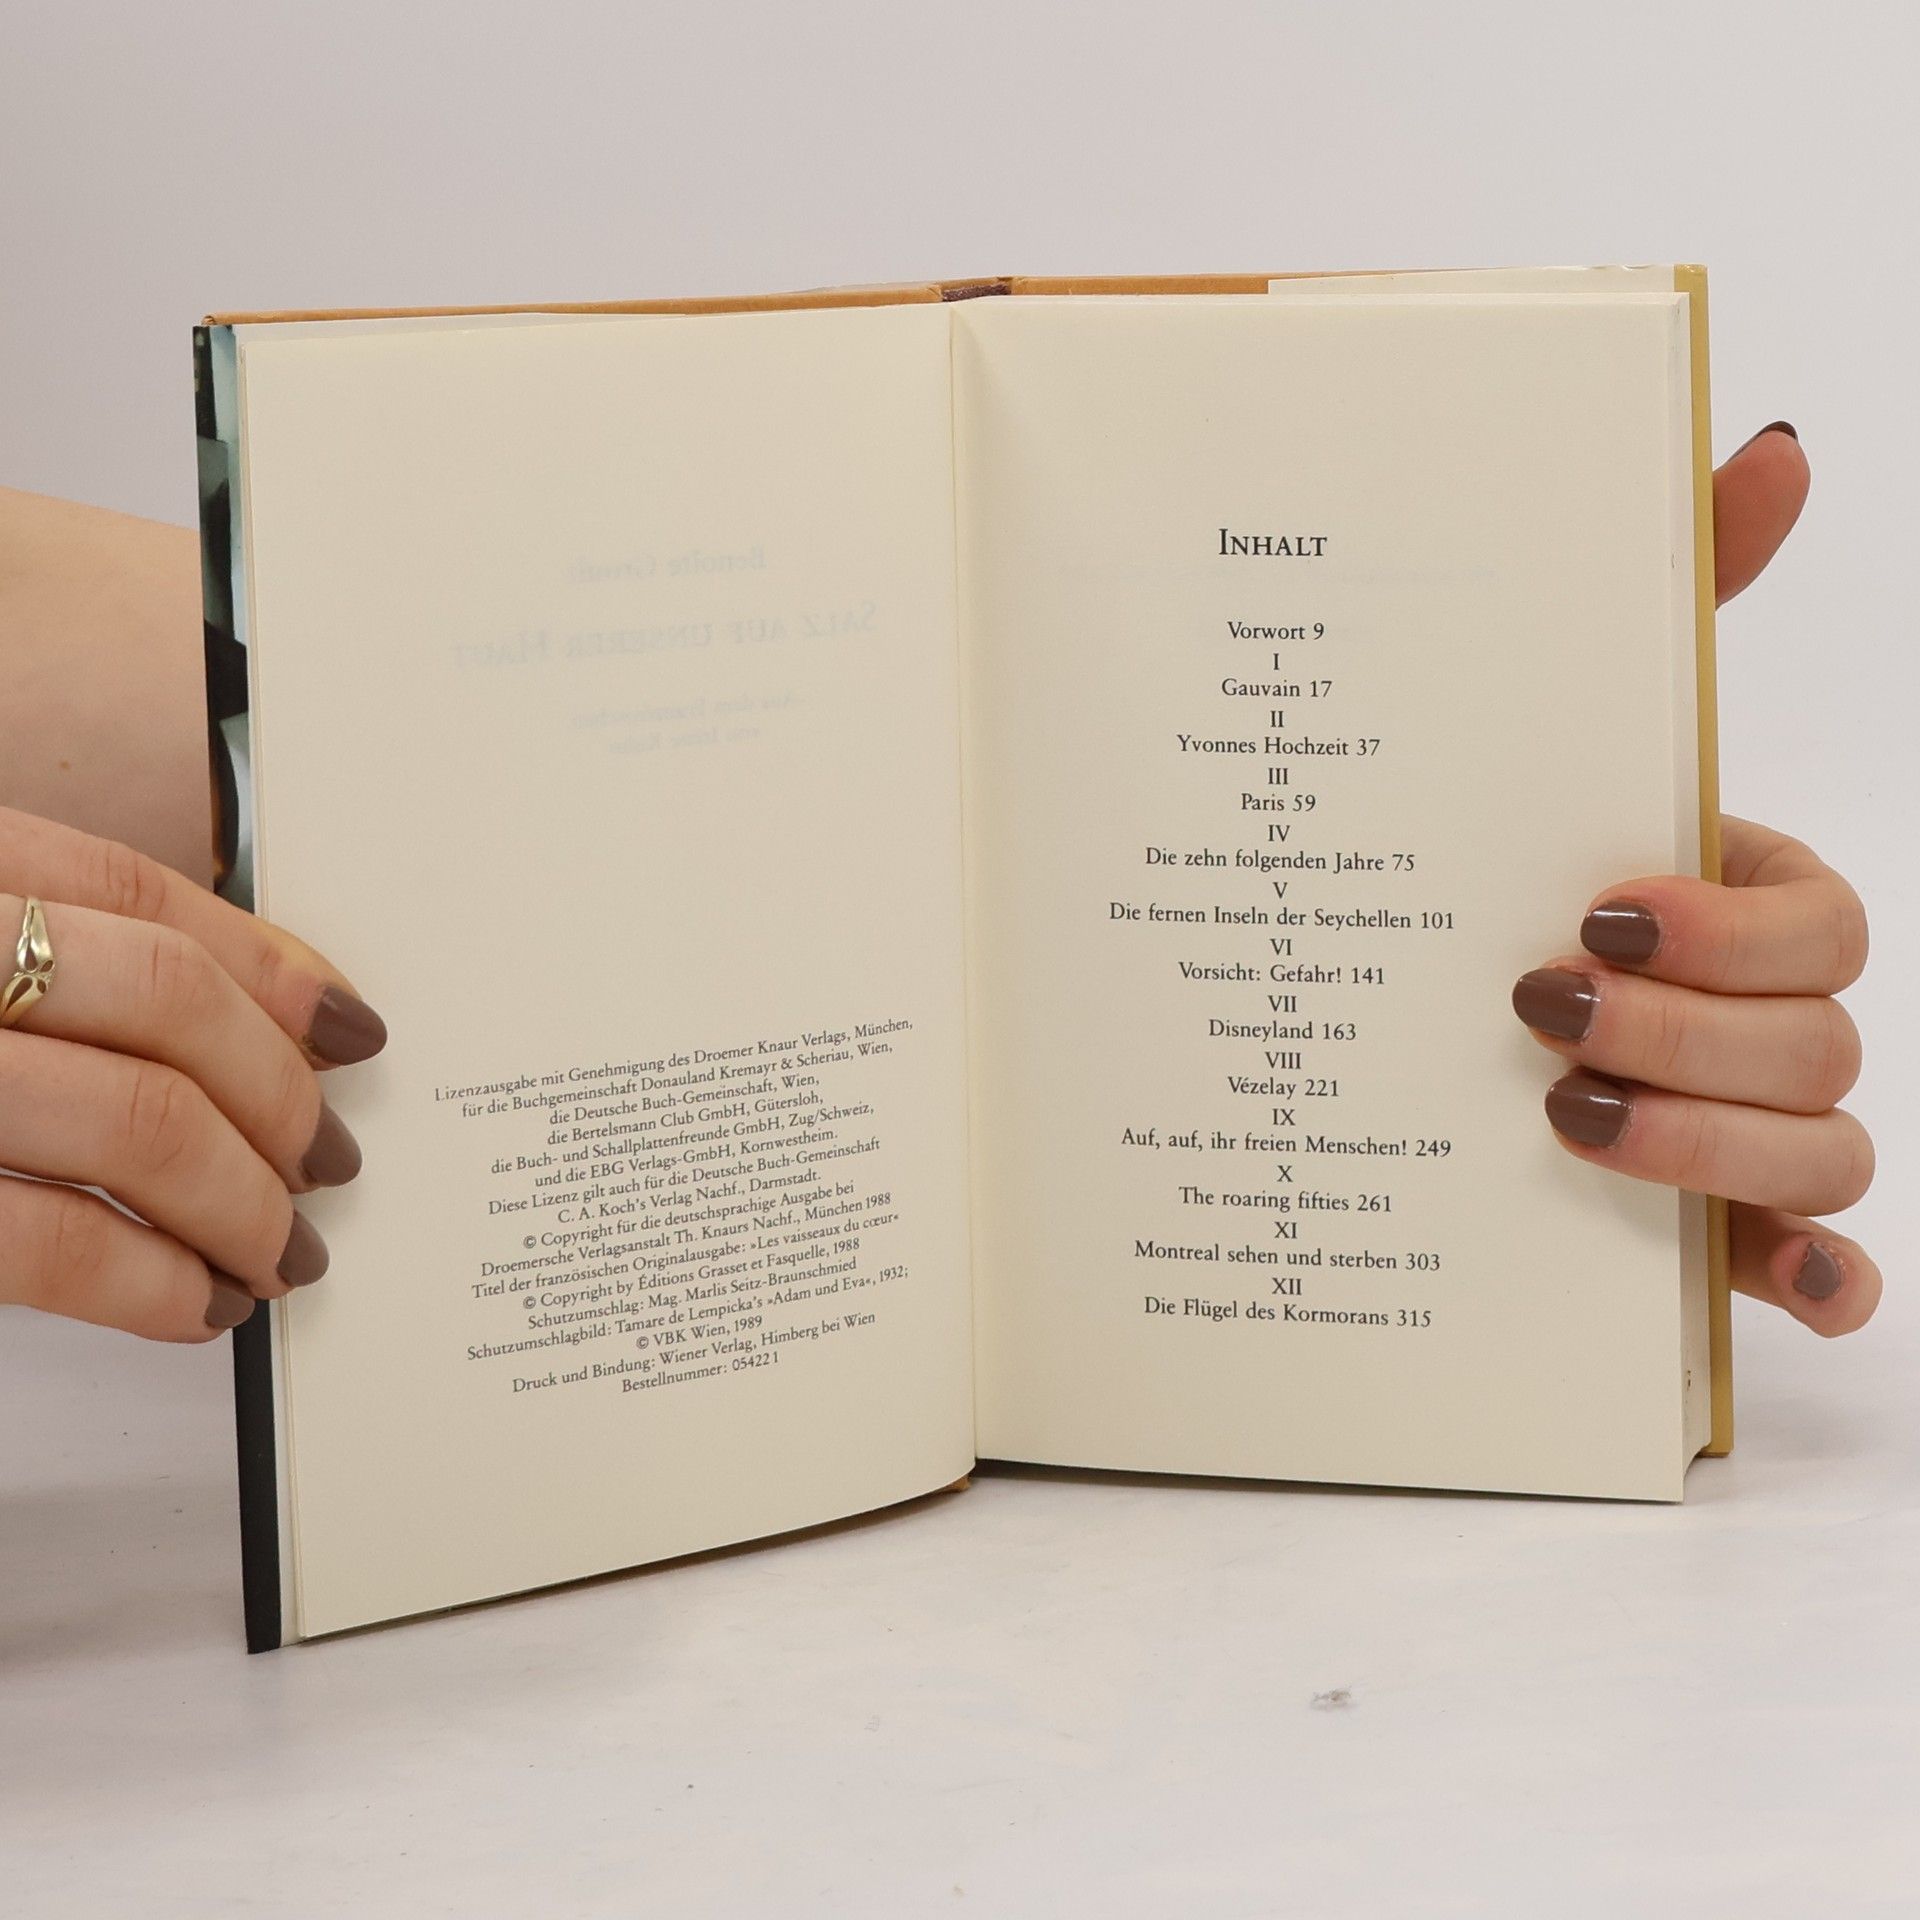 Lizenzausgabe mit Genehmigung des Droemer Knaur Verlags, München,
für die Buchgemeinschaft Donauland Kremayr & Scheriau, Wien,
die Deutsche Buch-Gemeinschaft, Wien,
die Bertelsmann Club GmbH, Gütersloh,
die Buch- und Schallplattenfreunde GmbH, Zug/Schweiz,
und die EBG Verlags-GmbH, Kornwestheim.
Diese Lizenz gilt auch für die Deutsche Buch-Gemeinschaft
C. A. Koch's Verlag Nachf., Darmstadt.
© Copyright für die deutschsprachige Ausgabe bei
Droemersche Verlagsanstalt Th. Knaurs Nachf., München 1988
Titel der französischen Originalausgabe: »Les vaisseaux du cœur«
© Copyright by Éditions Grasset et Fasquelle, 1988
Schutzumschlag: Mag. Marlis Seitz-Braunschmied
Schutzumschlagbild: Tamare de Lempicka's »Adam und Eva«, 1932;
© VBK Wien, 1989
Druck und Bindung: Wiener Verlag, Himberg bei Wien
Bestellnummer: 054221
INHALT
Vorwort 9
I
Gauvain 17
II
Yvonnes Hochzeit 37
III
Paris 59
IV
Die zehn folgenden Jahre 75
V
Die fernen Inseln der Seychellen 101
VI
Vorsicht: Gefahr! 141
VII
Disneyland 163
VIII
Vézelay 221
IX
Auf, auf, ihr freien Menschen! 249
X
The roaring fifties 261
XI
Montreal sehen und sterben 303
XII
Die Flügel des Kormorans 315